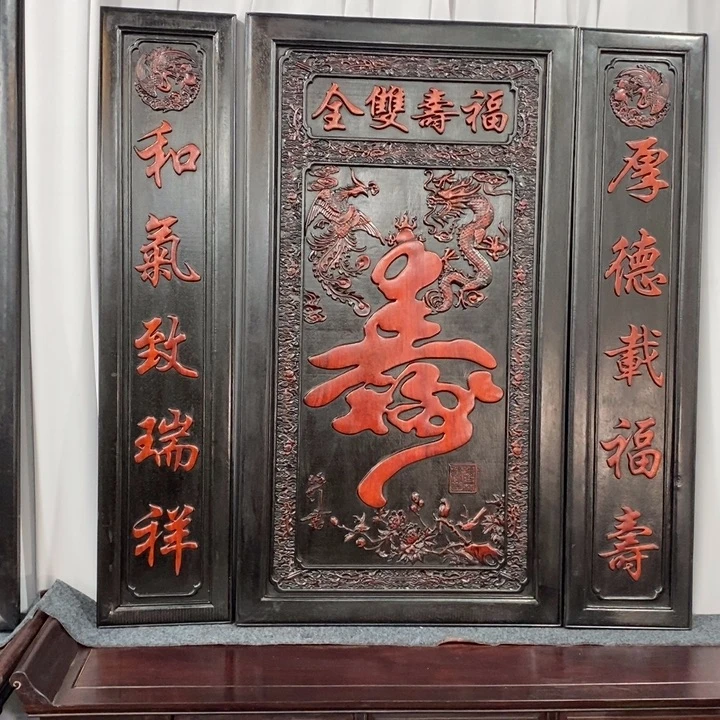 福壽雙全
厚德載福壽
壽
和氣致瑞祥